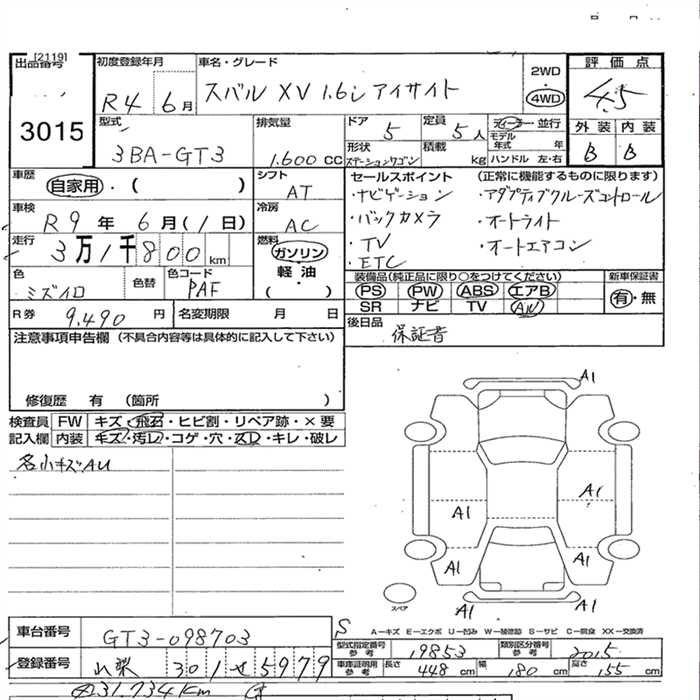 [2119]
出品番号
3015
初度登録年月
R4 6月
車名・グレード
スバル XV 1.6i アイサイト
2WD
4WD
評価点
4.5
外装 内装
B B
型式
3BA-GT3
排気量
1.600 CC
ドア
5
定員
5人
ディーラー・並行
モデル年式 年
形状
ステーションワゴン
積載
kg
ハンドル 左・右
車歴
自家用・( )
シフト
AT
セールスポイント (正常に機能するものに限ります)
・ナビゲーション
・バックカメラ
・TV
・ETC
・アダプティブクルーズコントロール
・オートライト
・オートエアコン
車検
R9年6月(1日)
冷房
AC
走行
3万1千800km
燃料
ガソリン
軽油
( ・ )
色
ミズイロ
色替
色コード
PAF
装備品(純正品に限り○をつけてください)
PS PW ABS エアB
SR ナビ TV AW
新車保証書
有・無
R券 9.490円
名変期限 月 日
後日品
保証書
注意事項申告欄(不具合内容等は具体的に記入して下さい)
修復歴 有 (箇所 )
検査員記入欄
FW キズ・飛石・ヒビ割・リペア跡・×要
内装 キズ・汚レ・コゲ・穴・スレ・キレ・破レ
各小キズAU
A1
A1
A1
A1
A1
A1
A1
スペア
S
A−キズ E−エクボ U−凹み W−補修跡 S−サビ C−腐食 XX−交換済
車台番号
GT3-098703
登録番号
山梨 301 せ 5979
型式指定番号参考
19853
類別区分番号参考
2015
車庫証明用参考
長さ 448cm
幅 180cm
高さ 155cm
31.734Km